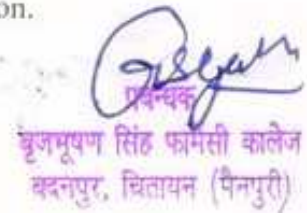 on.
प्रबन्धक
बृजभूषण सिंह फार्मेसी कालेज
बदनपुर, चितायन (मैनपुरी)